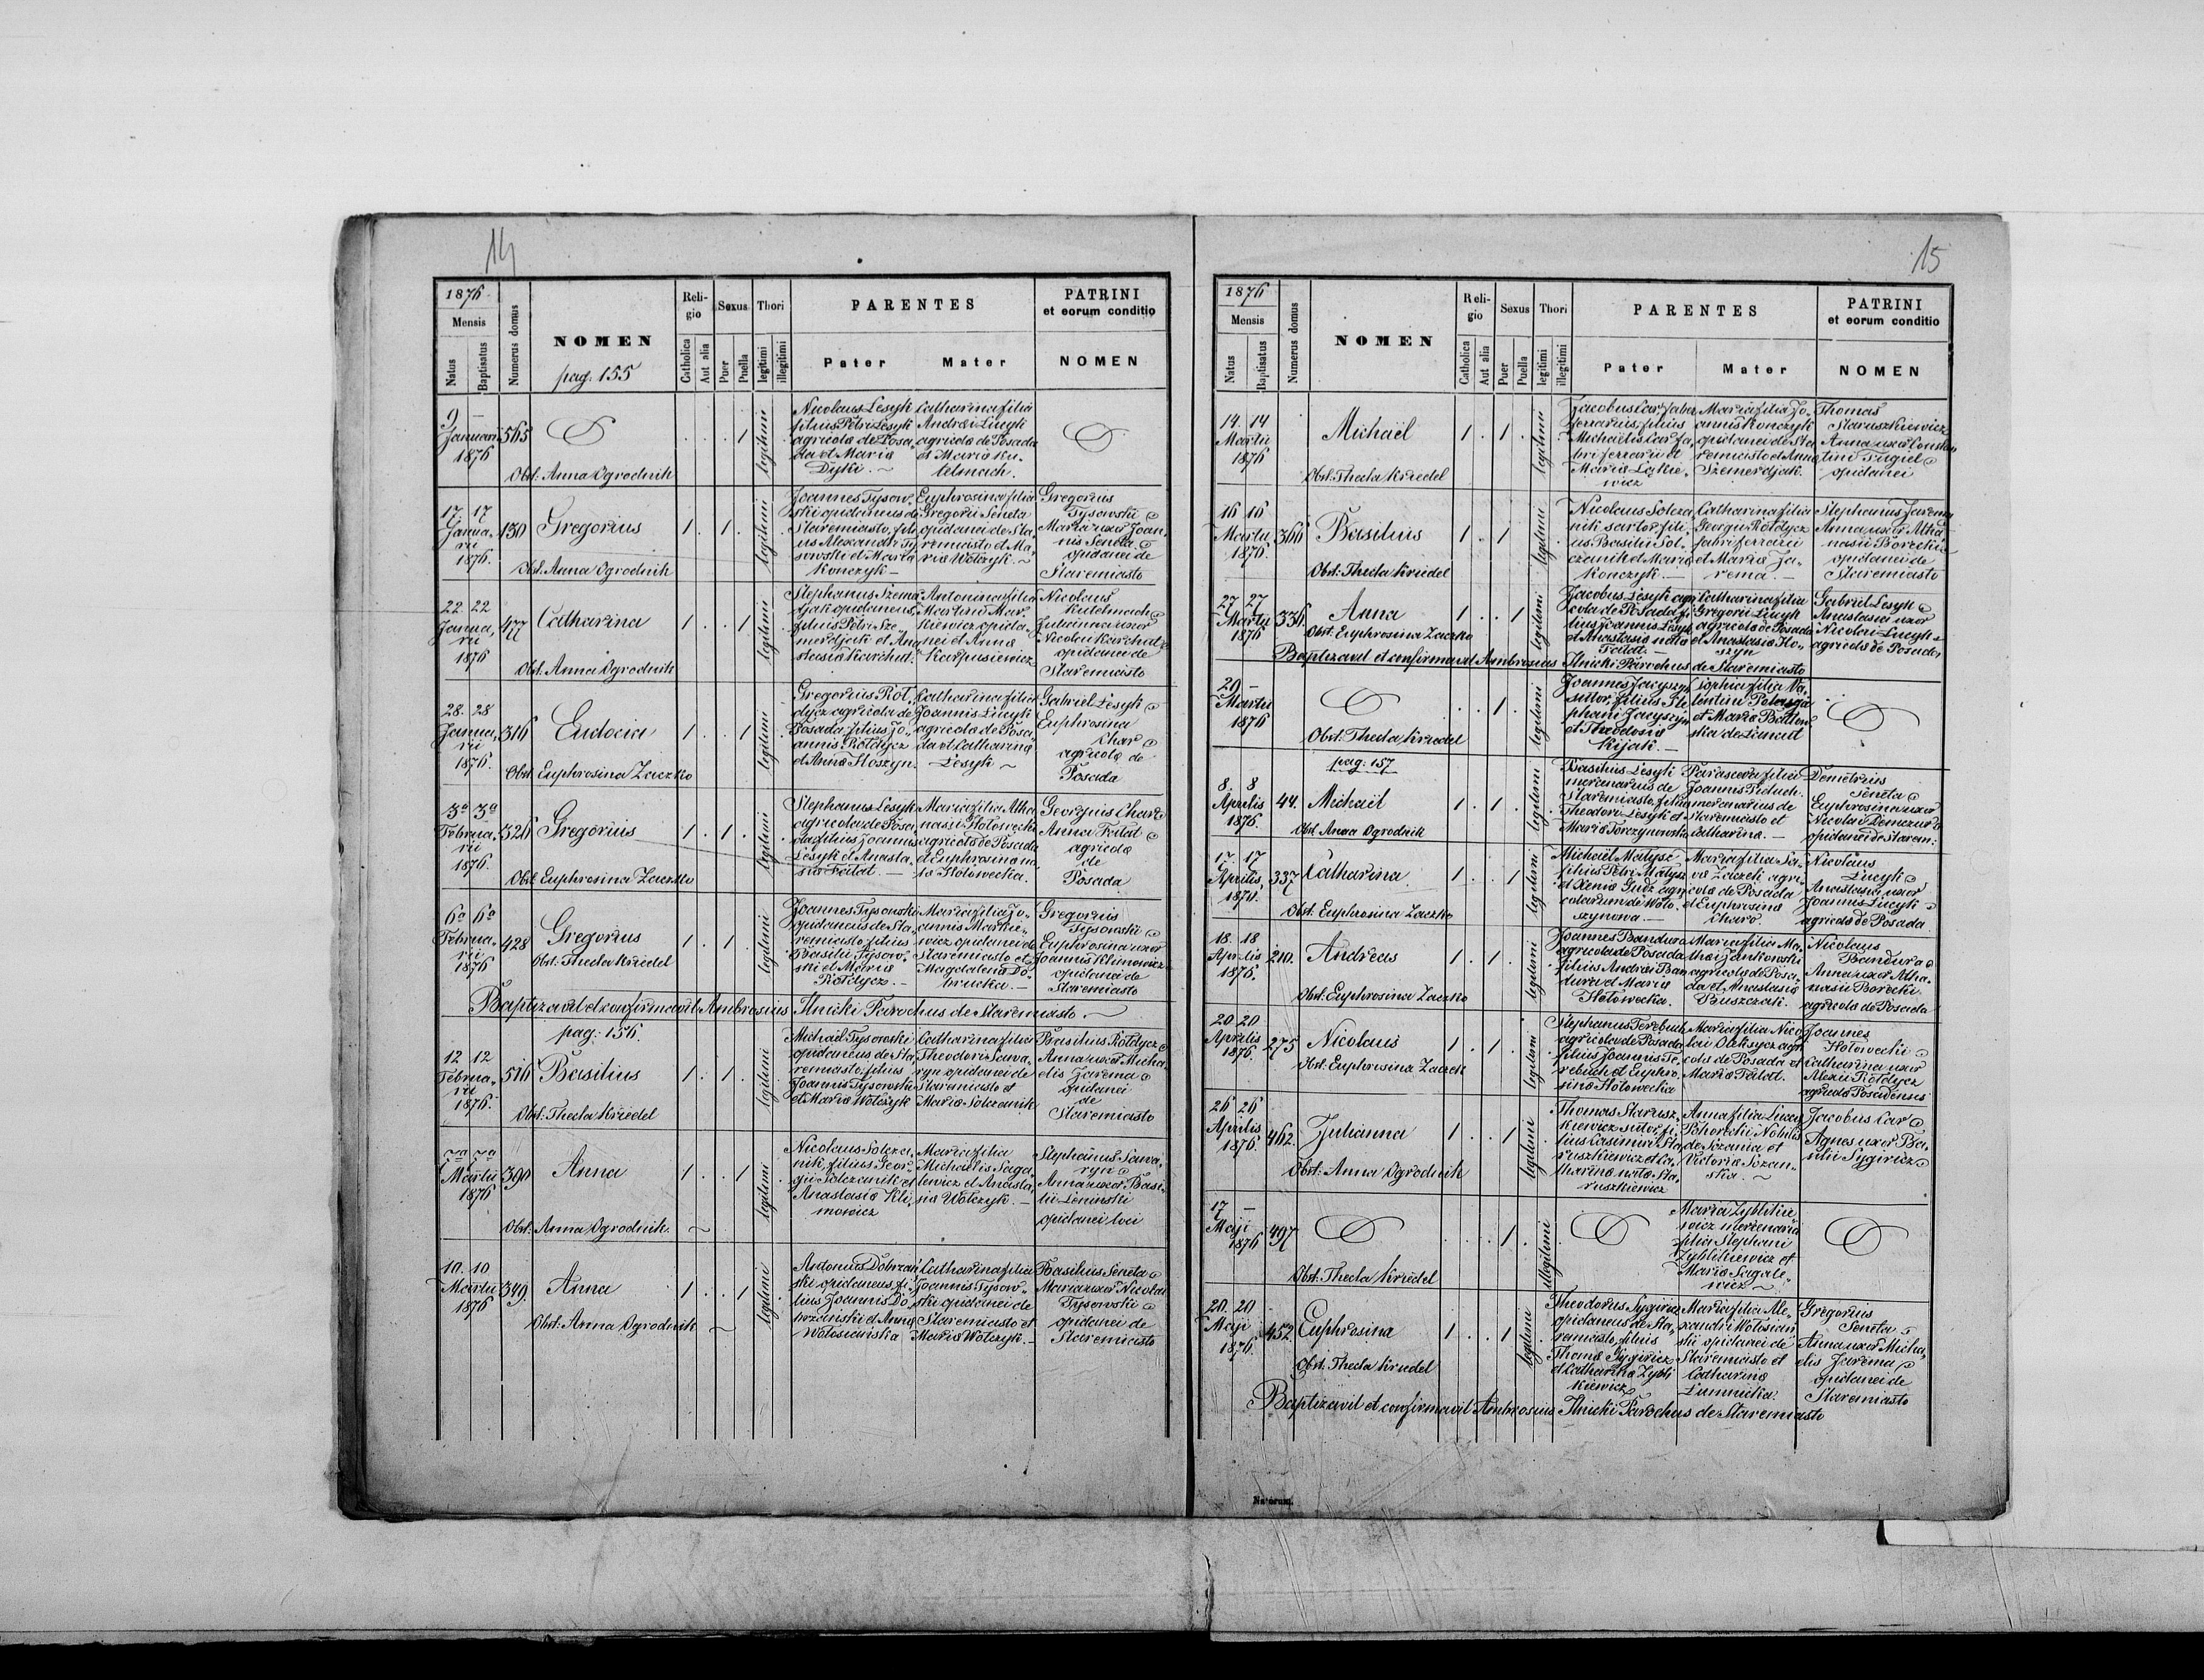 14
1876
Mensis
Natus
Baptisatus
Numerus domus
NOMEN
pag: 155
Religio
Catholica
Aut alia
Sexus
Puer
Puella
Thori
legitimi
illegitimi
PARENTES
Pater
Mater
PATRINI
et eorum conditio
NOMEN
9 –
Januari
1876
565
Obst: Anna Ogrodnik
1
legitimi
Nicolaus Lesyk
filius Petri Lesyk
agricolæ de Posa„
da et Mariæ
Dyki. ~
Catharina filia
Andreæ Lucyk
agricolæ de Posada
et Mariæ Ku„
telmach.
17. 17
Janua„
rii
1876.
130
Gregorius
Obst. Anna Ogrodnik
1 . 1 .
legitimi
Joannes Tysow„
ski opidanus de
Staremiasto, fili„
us Alexandri Ty„
sowski et Maria
Konczyk –
Euphrosina filia
Gregorii Seneta
opidanei de Sta„
remiasto et Ma„
riæ Wolczyk. ~
Gregorius
Tysowski
Maria uxor Joan„
nis Seneta
opidanei de
Staremiasto
22 22
Janua„
rii
1876
477
Catharina
Obst. Anna Ogrodnik
1 . . 1
legitimi
Stephanus Szemer„
djak opidaneus,
filius Petri Sze„
merdjak et Ana„
stasiæ Karchut.
Antonina filia
Martini Mar„
kiewicz opida„
nei et Annæ
Karpusiewicz
Nicolaus
Kutelmach
Julianna uxor
Nicolai Karchut
opidanei de
Staremiasto
28. 28
Janua„
rii
1876.
316
Eudocia
Obst: Euphrosina Zaczko
1 . . 1
legitimi
Gregorius Rot„
dycz agricola de
Posada filius Jo„
annis Roldycz
et Annæ Hoszyn.
Catharina filia
Joannis Lucyk
agricolæ de Posa„
da et Catharinæ
Lesyk ~
Gabriel Lesyk
Euphrosina
Char
agricolæ de
Posada
3ª 3ª
Februa„
rii
1876.
326
Gregorius
Obst Euphrosina Zaczko
1 . 1 .
legitimi
Stephanus Lesyk
agricola de Posa„
da filius Joannis
Lesyk et Anasta„
siæ Fatat. –
Maria filia Atha
nasii Hołowecki
agricolæ de Posada
et Euphrosinæ na„
tæ Hołowecka.
Georgius Char
Anna Fatat
agricolæ
de
Posada
6ª 6ª
Februa„
rii
1876
428
Gregorius
Obst: Thecla Kriedel
1 . 1 .
legitimi
Joannes Tysowski
opidaneus de Sta„
remiasto filius
Basilii Tysow„
ski et Mariæ
Roldycz. –
Maria filia Jo„
annis Markie„
wicz opidanei de
Staremiasto et
Magdalenæ Do„
brucka. –
Gregorius
Tysowski
Euphrosina uxor
Joannis Klimowicz
opidanei de
Staremiasto
Baptizavit et confirmavit Ambrosius Ilnicki Parochus de Staremiasto. ~
pag: 156.
12 12
Februa„
rii
1876.
516
Basilius
Obst: Thecla Kriedel
1 . 1 .
legitimi
Michaël Tysowski
opidaneus de Sta„
remiasto, filius
Joannis Tysowski
et Mariæ Wolczyk
Catharina filia
Theodori Sawa„
ryn opidanei de
Staremiasto et
Mariæ Solczanik
Basilius Roldycz
Anna uxor Micha„
elis Jarema
opidanei
de
Staremiasto
7ª 7ª
Martii
1876
390
Anna
Obst: Anna Ogrodnik. ~
1 . . 1
legitimi
Nicolaus Solcza„
nik, filius Geor„
gii Solczanik et
Anastasiæ Kli„
mowicz
Maria filia
Michaëlis Saga„
lewicz et Anasta„
siæ Wolczyk. –
Stephanus Sawa„
ryn
Anna uxor Basi„
lii Leninski
opidanei loci
10. 10
Martii
1876
349.
Anna
Obst: Anna Ogrodnik ~
1 . . 1
legitimi
Antonius Dobrzań
ski opidaneus, fi„
lius Joannis Do„
brzański et Annæ
Wołosiańska
Catharina filia
Joannis Tysow„
ski opidanei de
Staremiasto et
Mariæ Wolczyk. –
Basilius Seneta
Maria uxor Nicolai
Tysowski
opidanei de
Staremiasto
15
1876
Mensis
Natus
Baptisatus
Numerus domus
NOMEN
Religio
Catholica
Aut alia
Sexus
Puer
Puella
Thori
legitimi
illegitimi
PARENTES
Pater
Mater
PATRINI
et eorum conditio
NOMEN
14. 14
Martii
1876
Michaël
Obst. Thecla Kriedel
1 . 1 .
legitimi
Jacobus Car faber
ferrarius, filius
Michaëlis Car fa„
bri ferrarii et
Mariæ Lakie„
wicz
Maria filia Jo„
annis Konczyk
opidanei de Sta„
remiasto et Annæ
Szemerdjak.
Thomas
Staruszkiewicz
Anna uxor Constan
tini Fugiel
opidanei
16 16
Martii
1876.
366
Basilius
Obst: Thecla Kriedel
1 . 1
legitimi
Nicolaus Solcza
nik sartor fili„
us Basilii Sol„
czanik et Mariæ
Konczyk. –
Catharina filia
Georgii Roldycz
fabri ferrarii
et Mariæ Ja„
rema. –
Stephanus Jarema
Anna uxor Atha
nasii Borecki
opidanei de
Staremiasto
27 27
Martii
1876
336.
Anna
Obst. Euphrosina Zaczko
1 . . 1
legitimi
Jacobus Lesyk agri
cola de Posada fi„
lius Joannis Lesyk
et Anastasiæ natæ
Fatat. –
Catharina filia
Gregorii Lucyk
agricolæ de Posada
et Anastasiæ Ho„
szyn
Gabriel Lesyk
Anastasia uxor
Nicolai Lucyk
agricolæ de Posada,
Baptizavit et confirmavit Ambrosius Ilnicki Parochus de Staremiasto
20 –
Martii
1876
Obst. Thecla Kriedel
. . 1 .
legitimi
Joannes Jacyszyn
sutor, filius Ste„
phani Jacyszyn
et Theodosiæ
Kijak. –
Sophia filia Va„
lentini
et Mariæ
ska de Lancut
pag: 157
8. 8
Aprilis
1876.
44.
Michaël
Obst Anna Ogrodnik
1 . 1 .
legitimi
Basilius Lesyk
mercenarius de
Staremiasto, filius
Theodori Lesyk et
Mariæ Torczynowska
Parascevia filia
Joannis Fiduch
mercenarius de
Staremiasto et
Catharinæ. –
Demetrius
Seneta
Euphrosina uxor
Nicolai Demczur
opidanei de Starem:
17. 17
Aprilis
1871.
337
Catharina
Obst. Euphrosina Zaczko
1 . . 1
legitimi
Michaël Matysz
filius Petri Matysz
et Xeniæ Gudz agri
colarum de Woło„
szynowa. –
Maria filia Sa„
væ Zaczek agri„
colæ de Posada
et Euphrosinæ
Charo
Nicolaus
Lucyk
Anastasia uxor
Joannis Lucyk
agricolæ de Posada
18. 18
Aprilis
1876.
210.
Andreas
Obst. Euphrosina Zaczko
1 . 1 .
legitimi
Joannes Bandura
agricola de Posada
filius Andreæ Ban
dura et Mariæ
Hołowecka.
Maria filia Ma„
thæi Jankowski
agricolæ de Posa„
da et Anastasiæ
Buszczak.
Nicolaus
Bandura
Anna uxor Atha„
nasii Borecki.
agricolæ de Posada
20 20
Aprilis
1876.
275
Nicolaus
Obst. Euphrosina Zaczek
1 . 1 .
legitimi
Stephanus Terebuch
agricola de Posada
filius Joannis Te„
rebuch et Euphro„
sinæ Hołowecka
Maria filia Nico
lai Oleksycz agri
colæ de Posada et
Mariæ Fatat.
Joannes
Hołowecki
Catharina uxor
Alexii Roldycz
agricolæ Posadensis
26 26
Aprilis
1876.
462.
Julianna
Obst: Anna Ogrodnik
1 . . 1
legitimi
Thomas Starusz„
kiewicz sutor fi„
lius Casimiri Sta„
ruszkiewicz et Ca„
tharinæ natæ Sta„
ruszkiewicz
Anna filia Lucæ
Pohorecki Nobilis
de Sozania et
Victoriæ Sozan„
ska. ~
Jacobus Car
Agnes uxor Ba„
silii Sygiricz
17 –
Maji
1876
497
Obst. Thecla Kriedel
. . 1 .
illegitimi
Maria Zyblikie„
wicz mercenaria
filia Stephani
Zyblikiewicz et
Mariæ Sagale„
wicz ~
20. 20
Maji
1876.
452.
Euphrosina
Obst. Thecla Kriedel
1 . . 1
legitimi
Theodorus Sygiricz
opidaneus de Sta„
remiasto, filius
Thomæ Sygiricz
et Catharinæ Zybli
kiewicz
Maria filia Ale„
xandri Wołosian
ski opidanei de
Staremiasto et
Catharinæ
Lunnicka.
Gregorius
Seneta
Anna uxor Micha„
elis Jarema
opidanei de
Staremiasto
Baptizavit et confirmavit Ambrosius Ilnicki Parochus de Staremiasto
Natorum.